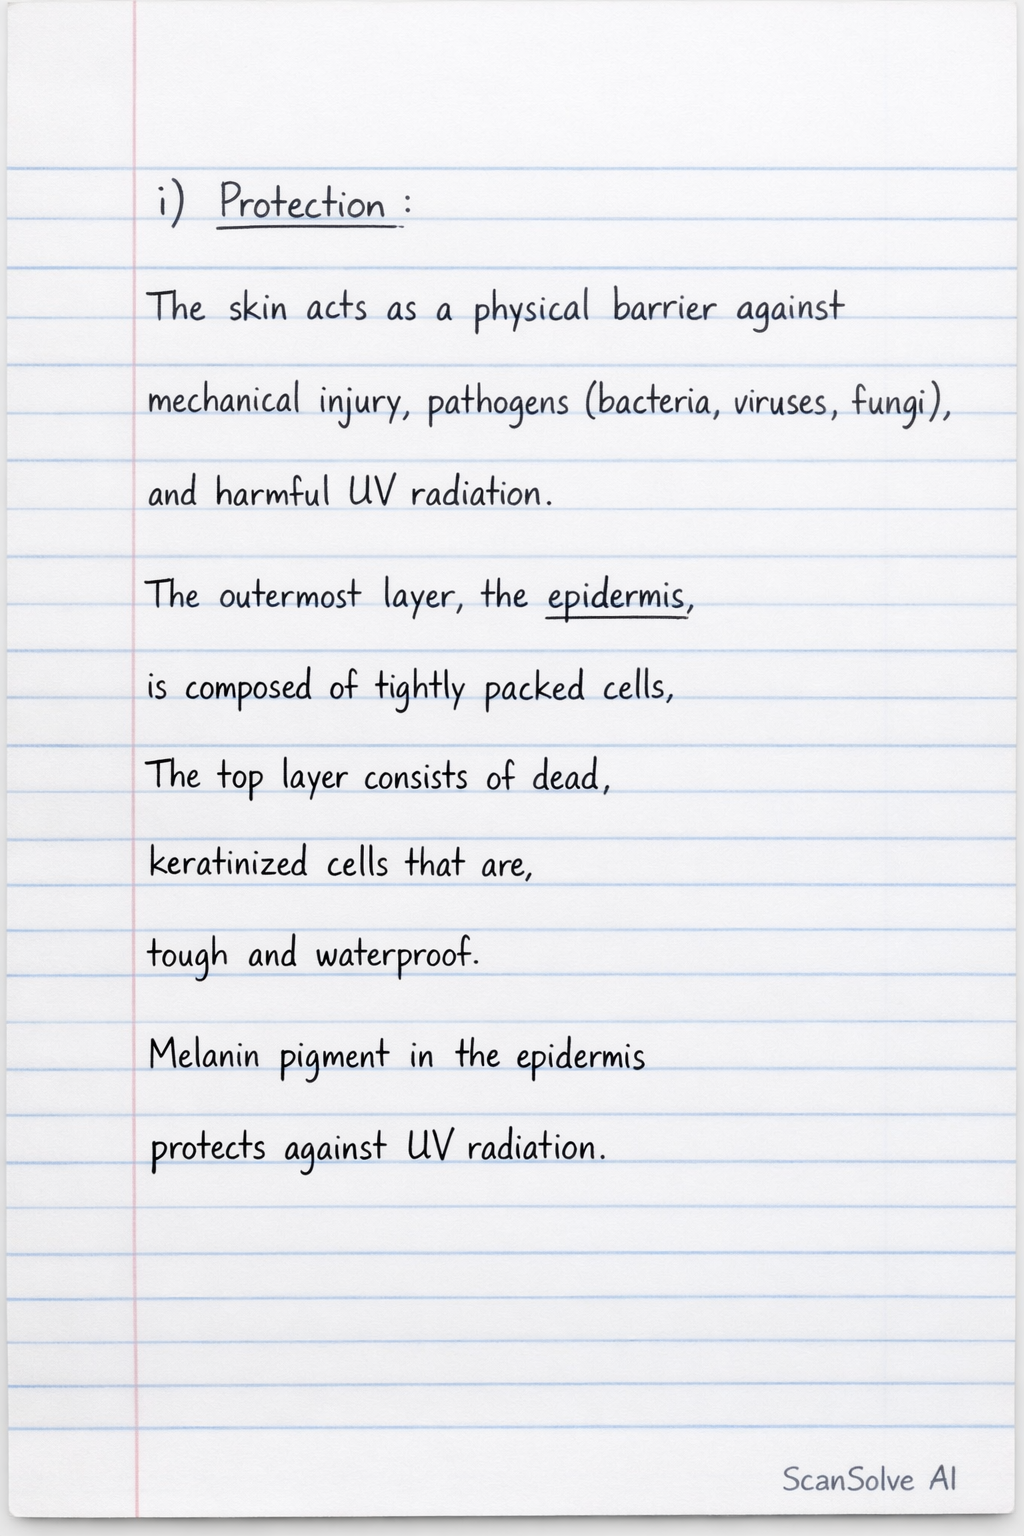 i) Protection :
The skin acts as a physical barrier against
mechanical injury, pathogens (bacteria, viruses, fungi),
and harmful UV radiation.
The outermost layer, the epidermis,
is composed of tightly packed cells,
The top layer consists of dead,
keratinized cells that are,
tough and waterproof.
Melanin pigment in the epidermis
protects against UV radiation.
ScanSolve AI